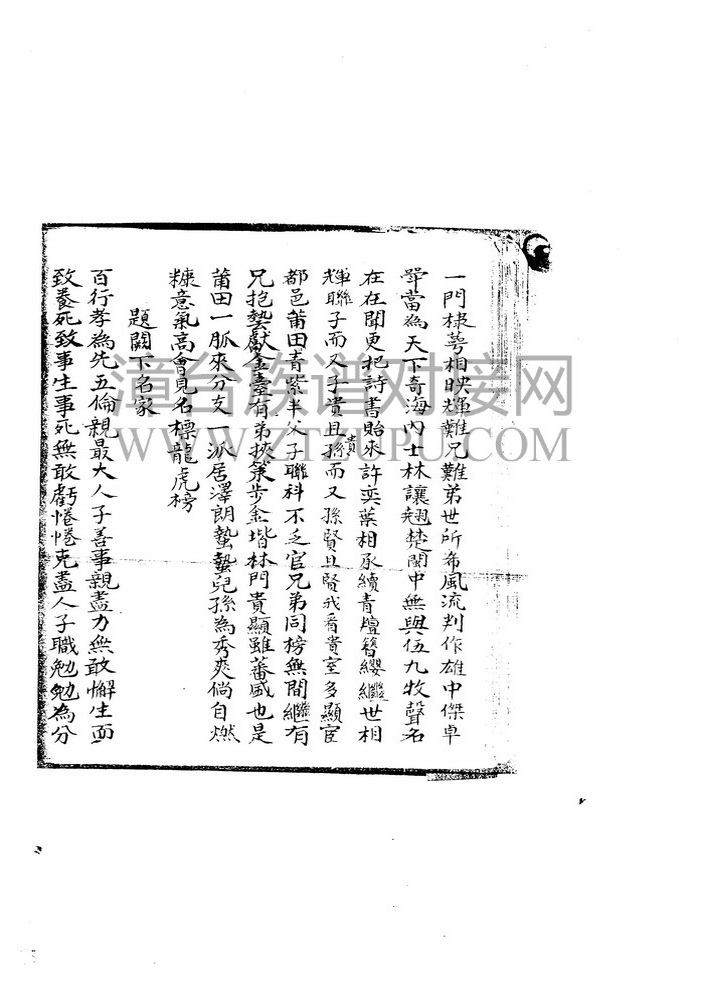 一門棣萼相映輝難兄難弟世所希風流判作雄中傑卓
犖當為天下奇海內士林讓翹楚閩中無與伍九牧聲名
在在聞更把詩書貽來許奕葉相承續青氊簪纓繼世相
輝聯子而又子貴且貴孫而又孫賢且賢我看貴室多顯宦
都邑莆田青紫半父子聯科不乏官兄弟同榜無間繼有
兄抱藝獻金臺有弟挾策步金堦林門貴顯雖蕃盛也是
莆田一脈來分支一派居澤朗蟄蟄兒孫為秀爽倘自燃
糠意氣高會見名標龍虎榜
題闕下名家
百行孝為先五倫親最大人子善事親盡力無敢懈生而
致養死致事生事死無敢虧惓惓克盡人子職勉勉為分
漳台族谱对接网
WWW.ZTZUPU.COM